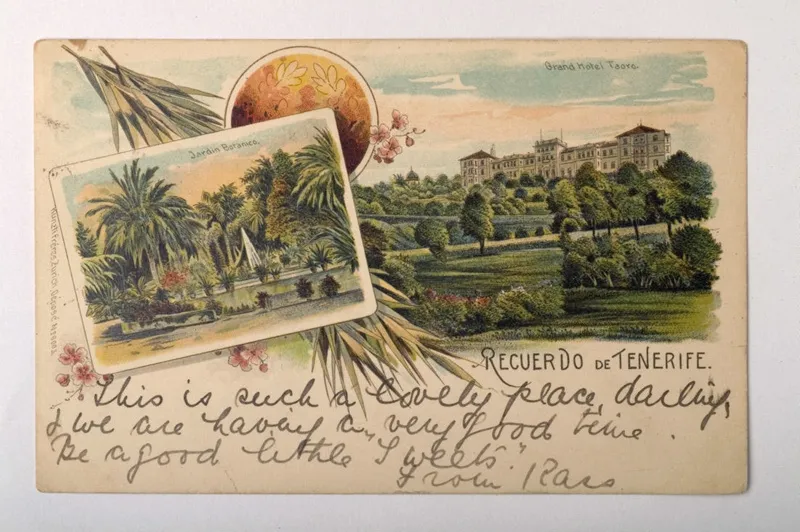 Grand Hotel Taoro.
Jardin Botanico.
RECUERDO DE TENERIFE.
This is such a lovely place, darling,
& we are having a very good time.
Be a good little
From